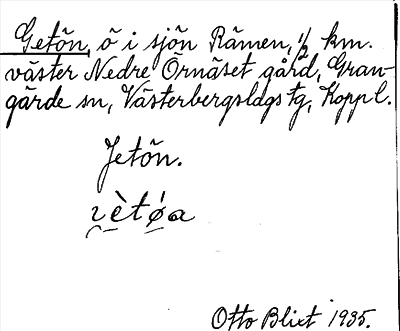 Getön, ö i sjön Rämen, ½ km.
väster Nedre Örnäset gård, Gran-
gärde sn, Västerbergslags tg, Kopp l.
Jetön.
Otto Blixt 1935.